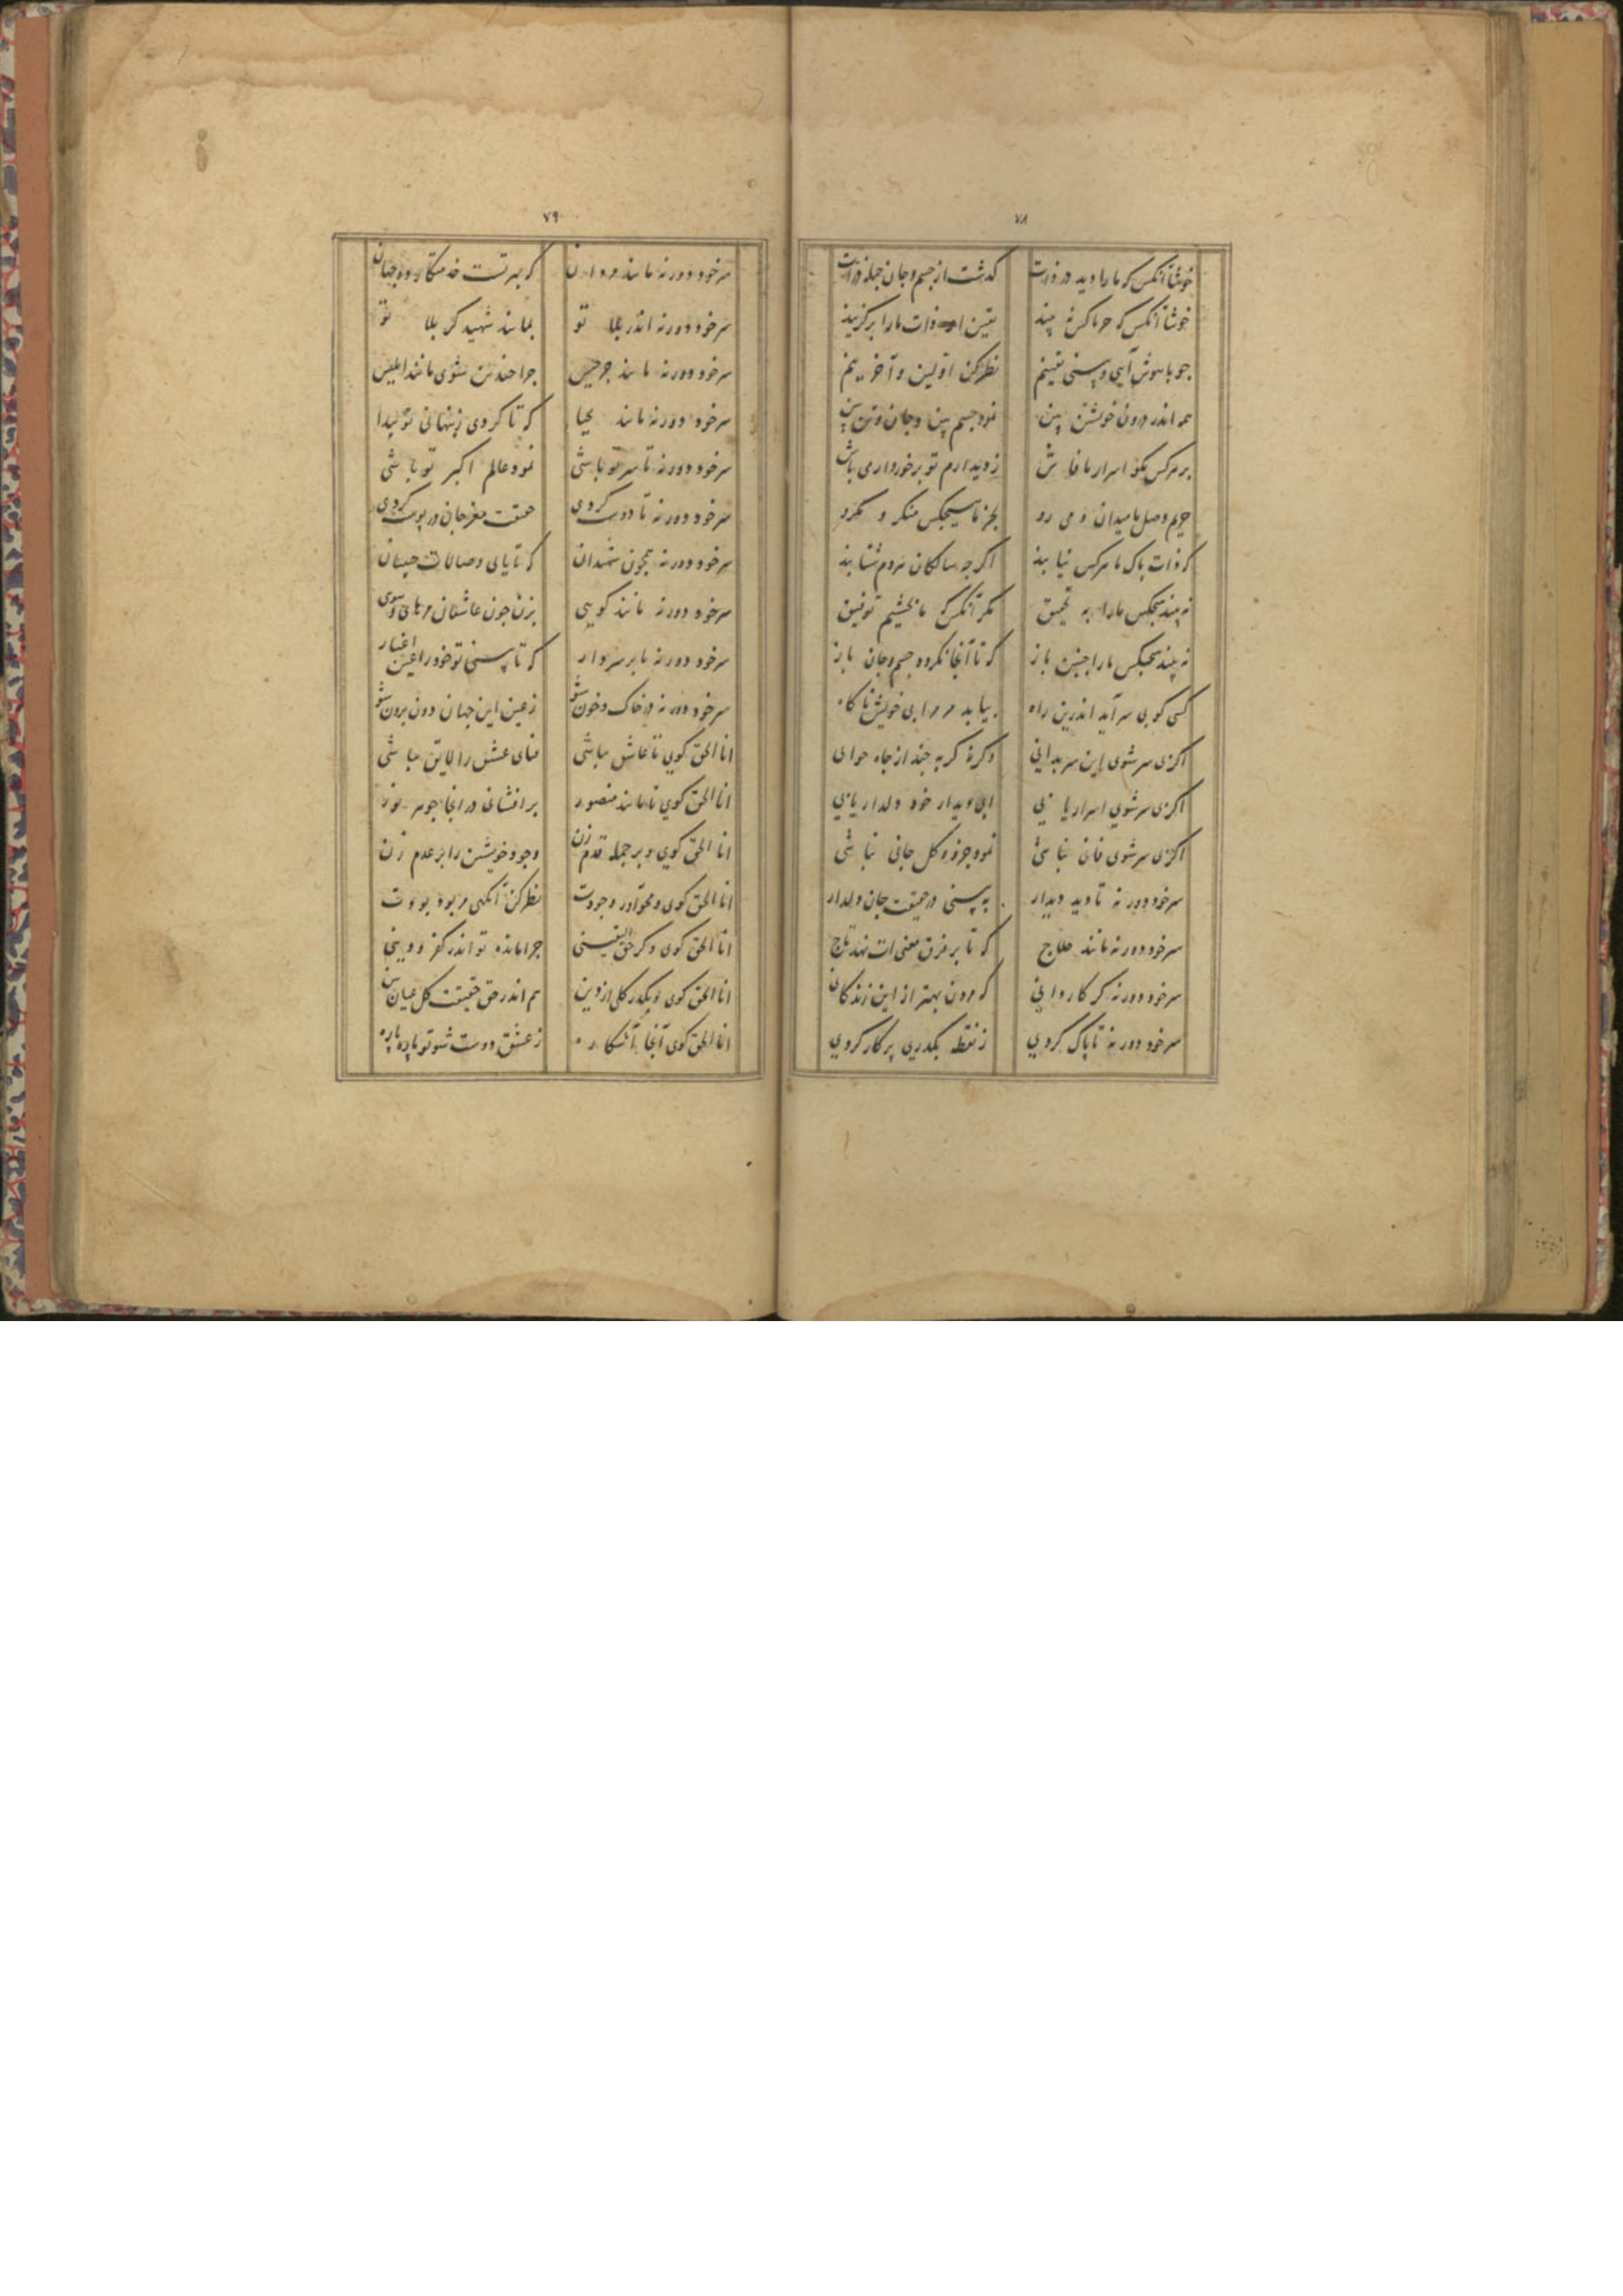 ۷۸
خوشا آنکس که ما را دید در ذرات کذشت از جسم و جان جمله ذرات
خوشا آنکس که جز ما کس نه بیند یقین او ذات ما را برکزیند
جو با هوش آیی و بینی یقینم نظر کن اولین و آخرینم
همه اندر درون خویشتن بین نمود جسم بین و جان و تن بین
بر هرکس مکو اسرار ما فاش ز دیدارم تو برخوردار می باش
حریم وصل ما میدان و می رو بجز ما هیچکس منکر و مکرو
که ذات پاک ما هرکس نیابند اکرجه سالکان هردم شتابند
نه بیند هیچکس ما را به تحقیق مکر آنکس که ما بخشیم توفیق
نه بیند هیچکس ما را جنین باز که تا آنجا نکردد جسم و جان باز
کسی کو بی سر آید اندرین راه بیابد مر مرا بی خویش ناکاه
اکر بی سر شوی این سر بدانی وکرنه کر به جند از جاه خوانی
اکر بی سر شوی اسرار یابی ابی دیدار خود دلدار یابی
اکر بی سر شوی فانی نباشی نمود جزو و کل جانی نباشی
سر خود دور نه تا دید دیدار به بینی در حقیقت جان دلدار
سر خود دور نه مانند حلاج که تا بر فرق معنی ات نهد تاج
سر خود دور نه کر کاردانی که مردن بهتر از این زندکانی
سر خود دور نه تا پاک کردی ز نقطه بکدری پرکار کردی
۷۹
سر خود دور نه مانند مردان که سرتست خدمتکار دو جهان
سر خود دور نه اندر بلا تو بمانند شهید کربلا تو
سر خود دور نه مانند جرجیس جرا جندین شوی مانند ابلیس
سر خود دور نه مانند یحیا که تا کردی ز پنهانی تو پیدا
سر خود دور نه تا سر تو باشی نمود عالم اکبر تو باشی
سر خود دور نه تا دوست کردی حقیقت مغز جان در پوست کردی
سر خود دور نه همجون شهیدان که تا یابی وصالات حبیبان
سر خود دور نه مانند کویی بزن جون عاشقان هر های و هویی
سر خود دور نه با بر سر دار که تا بینی تو خود را عین اغیار
سر خود دور نه در خاک و خون شو ز عین این جهان دون برون شو
انا الحق کوی تا عاشق باشی فنای عشق را لایق باشی
انا الحق کوی تا مانند منصور برافشانی در آنجا جوهر نور
انا الحق کوی و بر جمله قدم زن وجود خویشتن را بر عدم زن
انا الحق کوی و محو آور وجودت نظر کن آنکهی در بود بودت
انا الحق کوی و کر حق الیقینی جرا مانده تو اندر کفر و دینی
انا الحق کوی و بکدر کلی از دین هم اندر حق حقیقت کل عیان بین
انا الحق کوی آنجا آشکاره ز عشق دوست شو تو پاره پاره